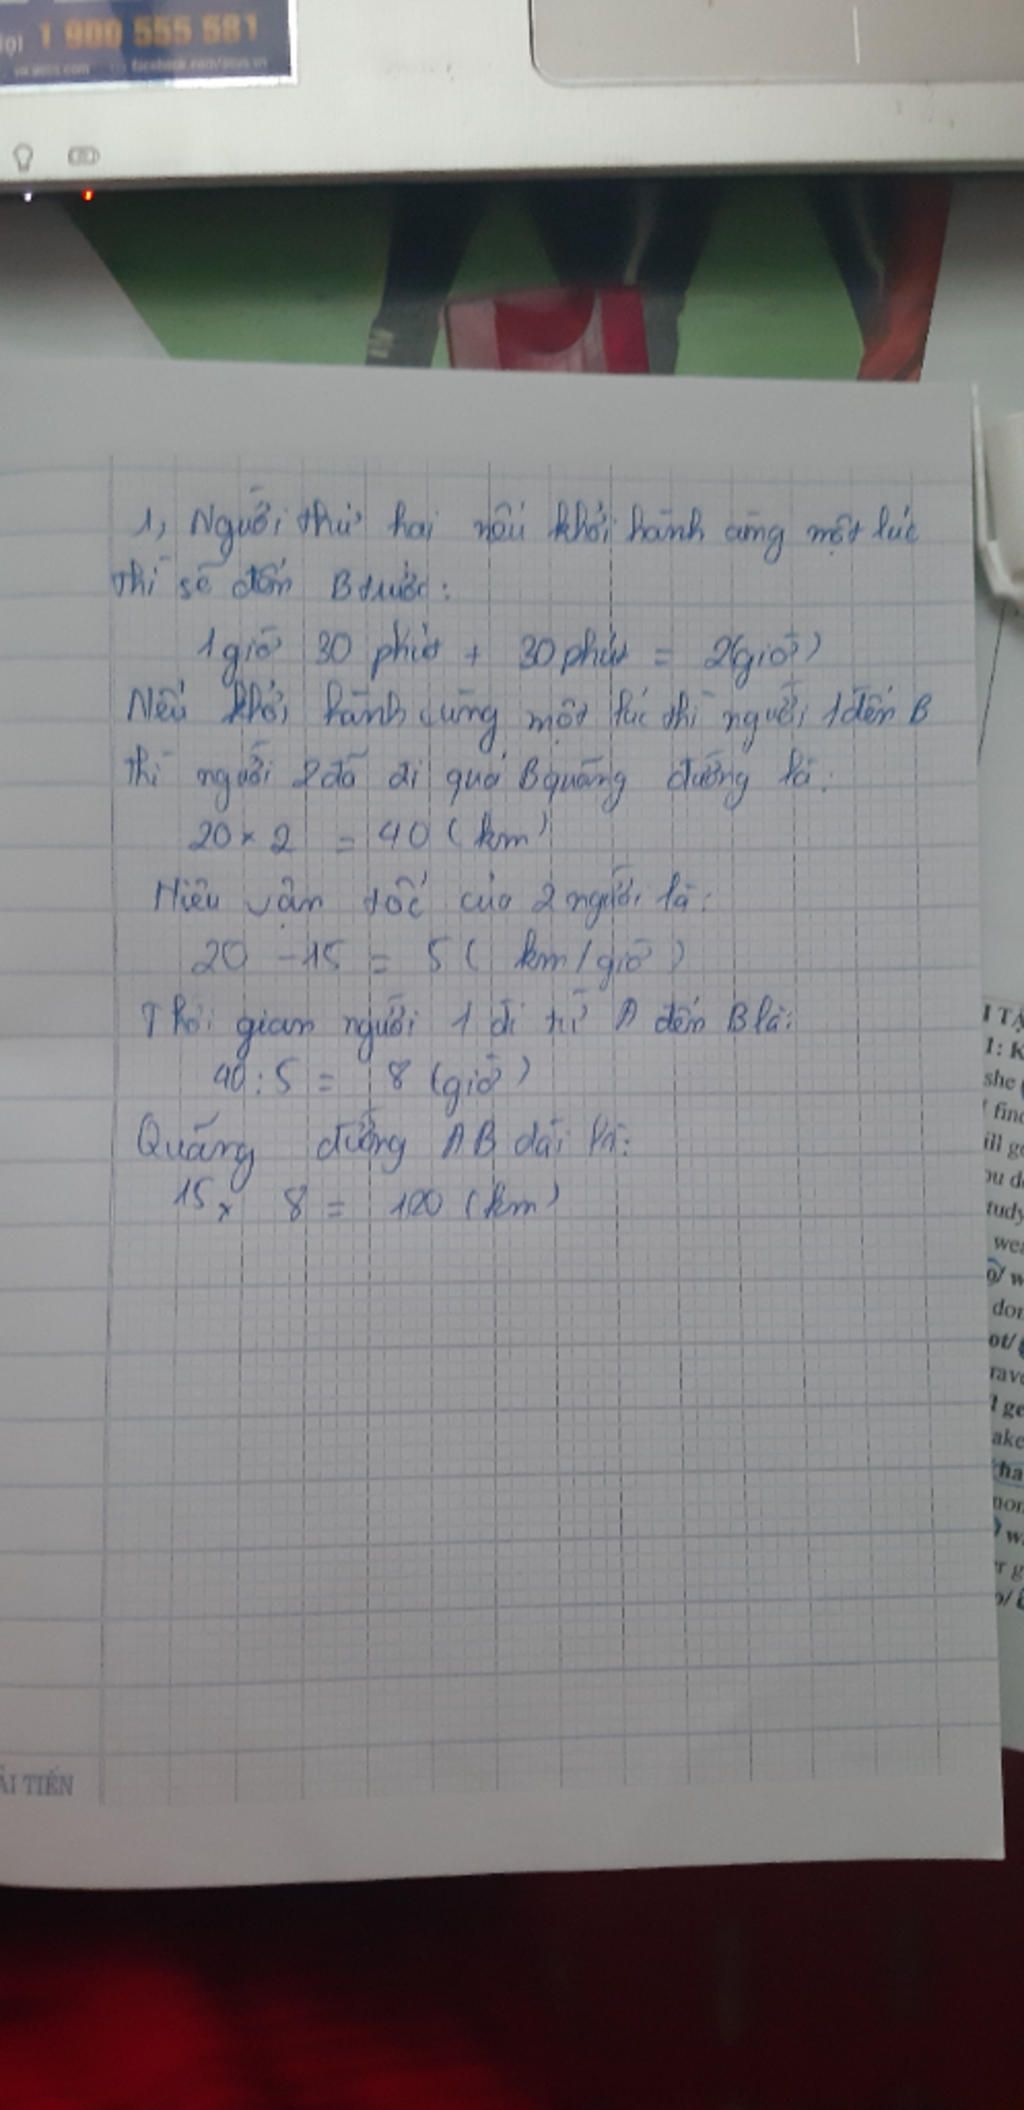 ọi 1 900 555 581
facebook.com/asus.vn
1, Người thứ hai nếu khởi hành cùng một lúc
thì sẽ đến B trước:
1 giờ 30 phút + 30 phút = 2(giờ)
Nếu khởi hành cùng một lúc thì người 1 đến B
thì người 2 đã đi quá B quãng đường là:
20 x 2 = 40 (km)
Hiệu vận tốc của 2 người là:
20 - 15 = 5 ( km/giờ )
Thời gian người 1 đi từ A đến B là:
40 : 5 = 8 (giờ)
Quãng đường AB dài là:
15 x 8 = 120 (km)
ẢI TIẾN
I TẬ
1: K
she
find
ill ge
ou d
tudy
wea
o/ w
don
ot/
rave
I ge
ake
ha
non
w
r g
o/